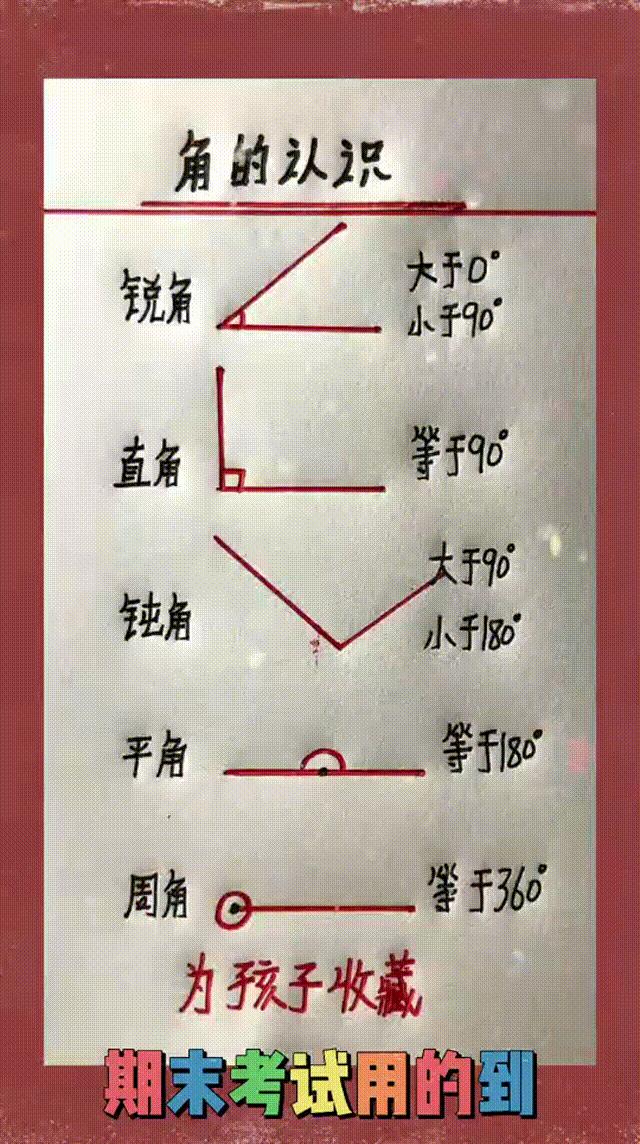 角的认识
锐角
大于0°
小于90°
直角
等于90°
钝角
大于90°
小于180°
平角
等于180°
周角
等于360°
为孩子收藏
期末考试用的到